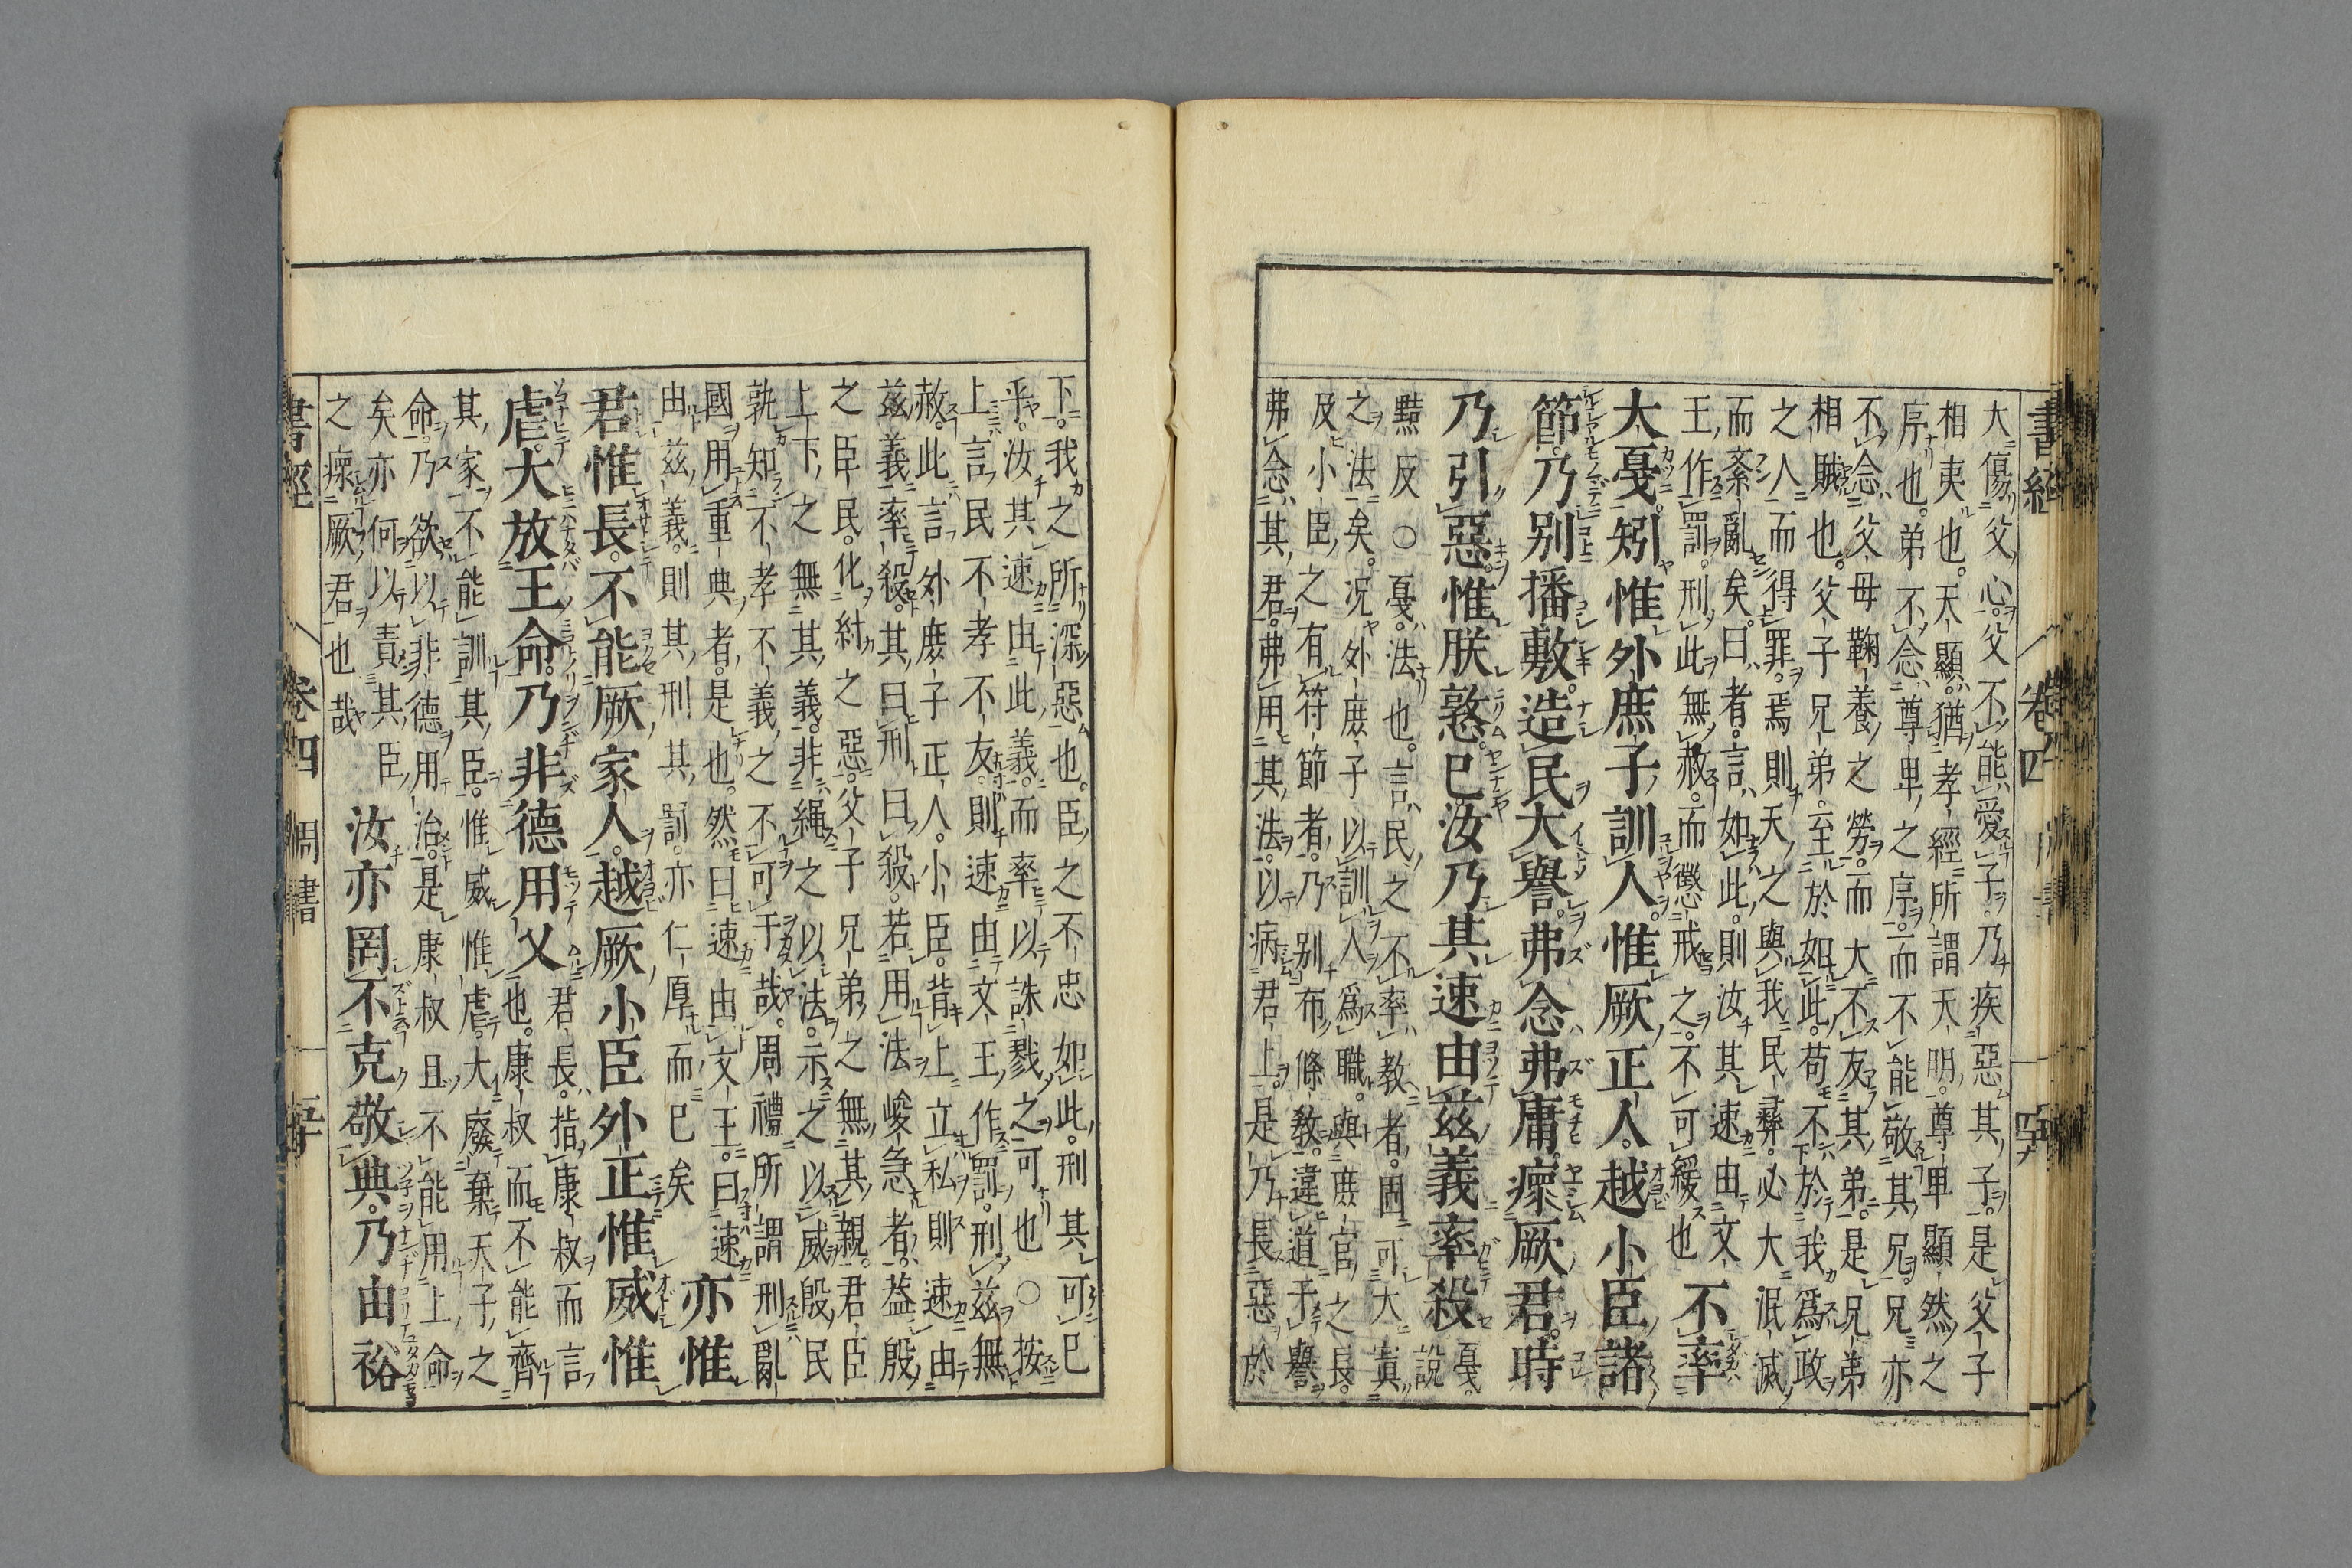 書經 卷四
大傷父心。父不能愛子。乃疾惡其子。是父子
相夷也。天顯。猶孝經所謂天明。尊卑顯然之
序也。弟不念尊卑之序。而不能敬其兄。兄亦
不念父母鞠養之勞。而大不友其弟。是兄弟
相賊也。父子兄弟。至於如此。苟不於我爲政
之人而得罪焉則天之與我民彝。必大泯滅
而紊亂矣。曰者。言如此。則汝其速由文
王作罰。刑此無赦。而懲戒之。不可緩也 不率
大戛。矧惟外庶子訓人。惟厥正人。越小臣諸
節。乃别播敷。造民大譽。弗念弗庸。瘝厥君。時
乃引惡。惟朕憝。已汝乃其速由茲義率殺 戛。說
黠反○戛。法也。言民之不率教者。固可大寘
之法矣。况外庶子以訓人爲職。與庶官之長。
及小臣之有符節者。乃别布條教。違道干譽
弗念其君。弗用其法。以病君上。是乃長惡於
下。我之所深惡也。臣之不忠如此。刑其可已
乎。汝其速由此義。而率以誅戮之可也○按
上言民不孝不友。則速由文王作罰。刑茲無
赦。此言外庶子正人。小臣。背上立私則速由
茲義率殺。其曰刑曰殺。若用法峻急者。蓋殷
之臣民。化紂之惡。父子兄弟之無其親。君臣
上下之無其義。非繩之以法。示之以威殷民
孰知不孝不義之不可干哉。周禮所謂刑亂
國用重典者。是也。然曰速由文王。曰速
由茲義。則其刑其罰亦仁厚而已矣 亦惟
君惟長。不能厥家人。越厥小臣外正惟威惟
虐。大放王命。乃非德用乂 君長。指康叔而言
也。康叔而不能齊
其家不能訓其臣。惟威惟虐。大廢棄天子之
命。乃欲以非德用治。是康叔且不能用上命
矣亦何以責其臣
之瘝厥君也哉 汝亦罔不克敬典。乃由裕
書經 卷四 周書 五十